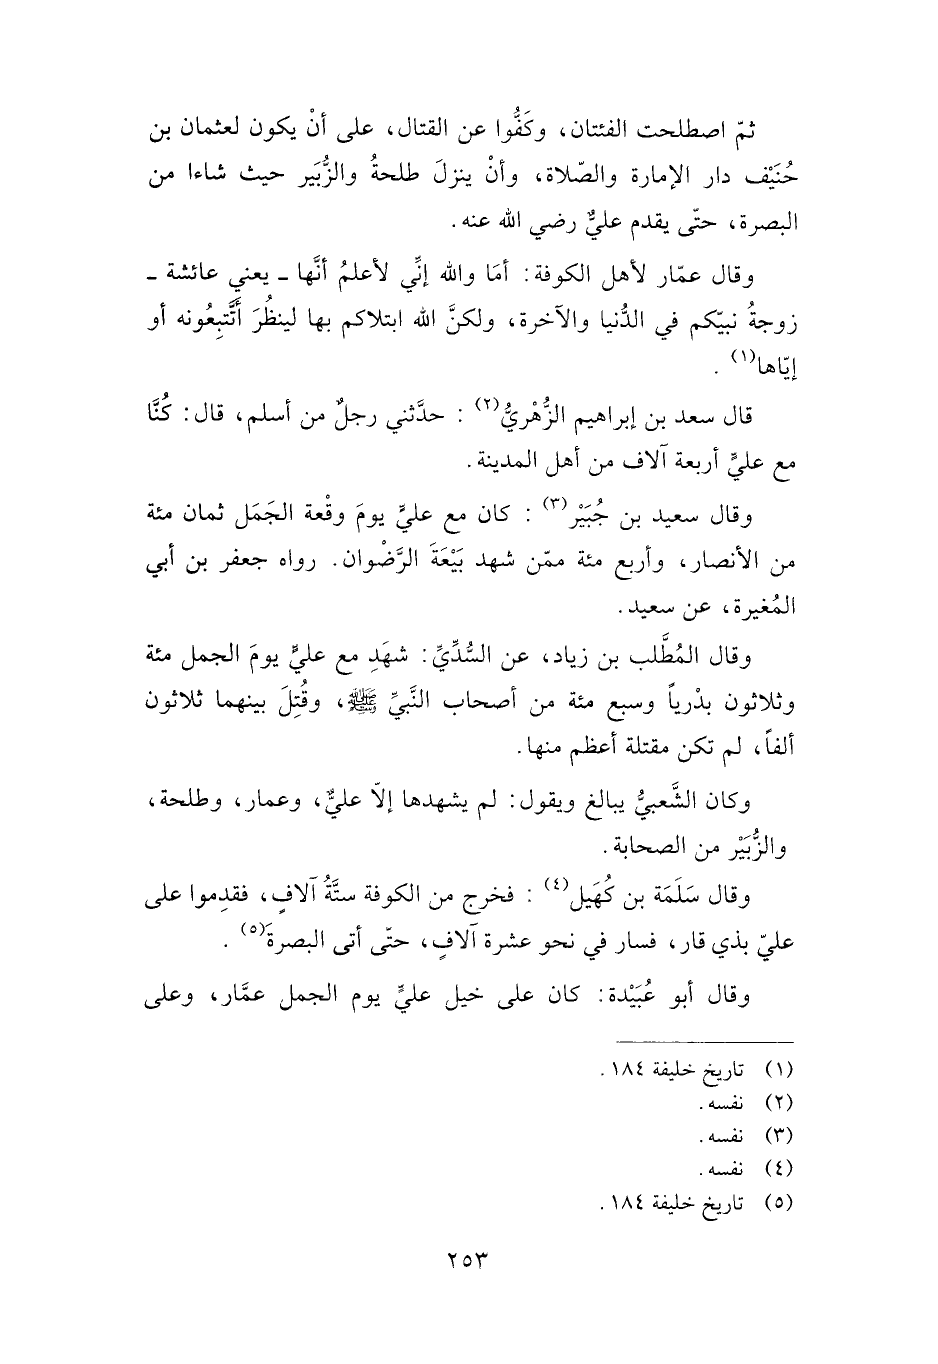 ثمّ اصطلحت الفئتان، وكَفُّوا عن القتال، على أنْ يكون لعثمان بن
حُنَيْف دار الإمارة والصّلاة، وأنْ ينزلَ طلحةُ والزُّبَير حيث شاءا من
البصرة، حتّى يقدم عليٌّ رضي الله عنه.
وقال عمّار لأهل الكوفة: أمَا والله إنِّي لأعلمُ أنَّها ـ يعني عائشة ـ
زوجةُ نبيّكم في الدُّنيا والآخرة، ولكنَّ الله ابتلاكم بها لينظُرَ أَتَّتبِعُونه أو
إيّاها(١).
قال سعد بن إبراهيم الزُّهْريُّ(٢): حدَّثني رجلٌ من أسلم، قال: كُنَّا
مع عليٍّ أربعة آلاف من أهل المدينة.
وقال سعيد بن جُبَيْر(٣): كان مع عليٍّ يومَ وقْعة الجَمَل ثمان مئة
من الأنصار، وأربع مئة ممّن شهد بَيْعَةَ الرَّضْوان. رواه جعفر بن أبي
المُغيرة، عن سعيد.
وقال المُطَّلب بن زياد، عن السُّدِّيِّ: شهَدِ مع عليٍّ يومَ الجمل مئة
وثلاثون بدْرياً وسبع مئة من أصحاب النَّبيِّ ﷺ، وقُتِلَ بينهما ثلاثون
ألفاً، لم تكن مقتلة أعظم منها.
وكان الشَّعبيُّ يبالغ ويقول: لم يشهدها إلاّ عليٌّ، وعمار، وطلحة،
والزُّبَيْر من الصحابة.
وقال سَلَمَة بن كُهَيل(٤): فخرج من الكوفة ستَّةُ آلافٍ، فقدِموا على
عليّ بذي قار، فسار في نحو عشرة آلافٍ، حتّى أتى البصرةَ(٥).
وقال أبو عُبَيْدة: كان على خيل عليٍّ يوم الجمل عمَّار، وعلى
(١) تاريخ خليفة ١٨٤.
(٢) نفسه.
(٣) نفسه.
(٤) نفسه.
(٥) تاريخ خليفة ١٨٤.
٢٥٣